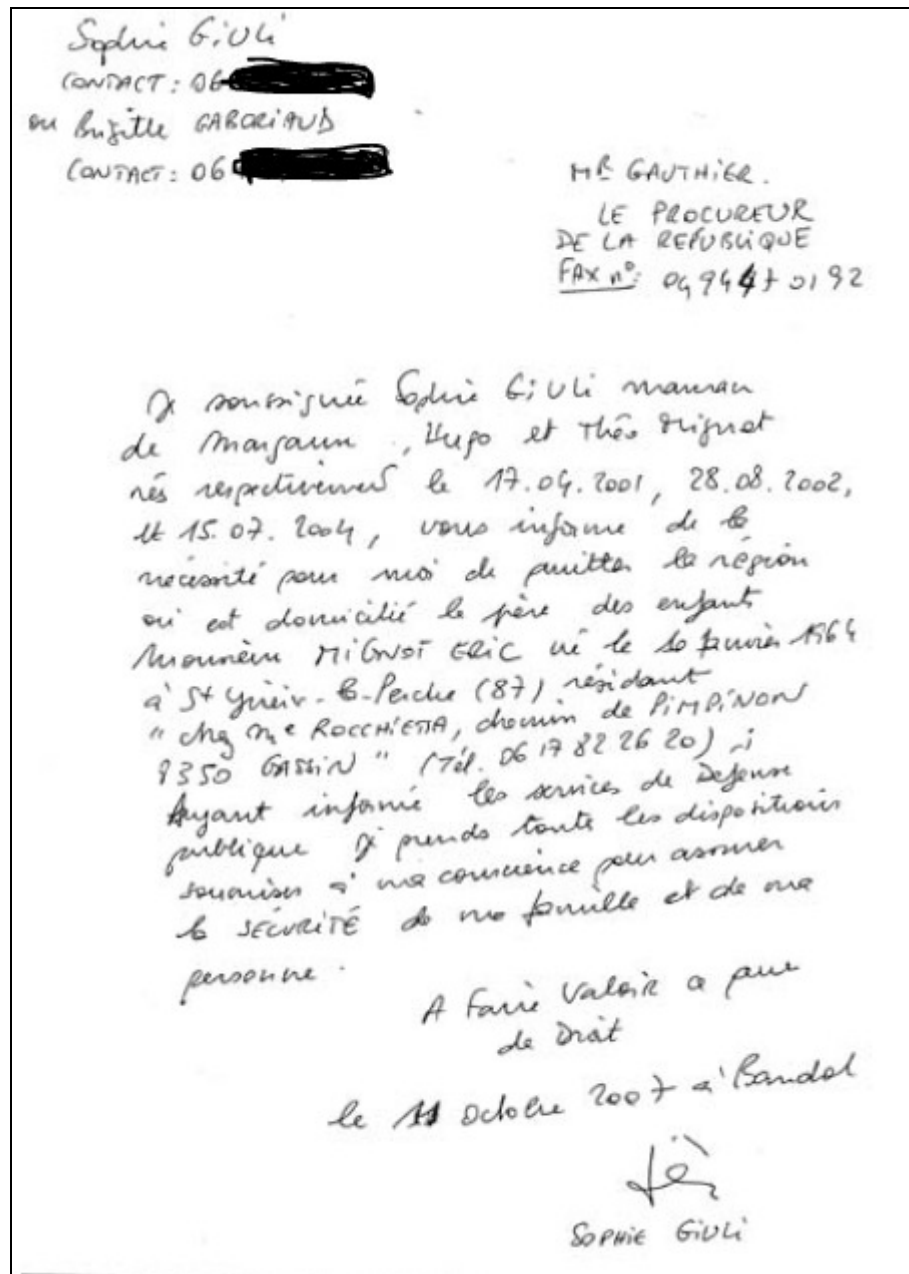 Sophie GiULi
CONTACT : 06
ou Brigitte GABORIAUD
CONTACT : 06
MR GAUTHIER.
LE PROCUREUR
DE LA REPUBLIQUE
FAX n°: 04 94 47 01 92
Je soussignée Sophie GiULi maman
de Margaux, Hugo et Théo Mignot
nés respectivement le 17.04.2001, 28.08.2002,
et 15.07.2004, vous informe de la
nécessité pour moi de quitter la région
où est domicilié le père des enfants
Monsieur MiGNOT ERiC né le 10 Janvier 1964
à St Yrieix-la-Perche (87) résidant
"chez Me ROCCHIETTA, chemin de PiMPiNON
8350 GASSiN" (Tél. 06 17 82 26 20) ;
Ayant informé les services de Defense
publique je prends toute les dispositions
soumises à ma conscience pour assurer
la SÉCURiTÉ de ma famille et de ma
personne.
A Faire Valoir a que
de Droit
le 11 octobre 2007 à Bandol
SOPHiE GiULi